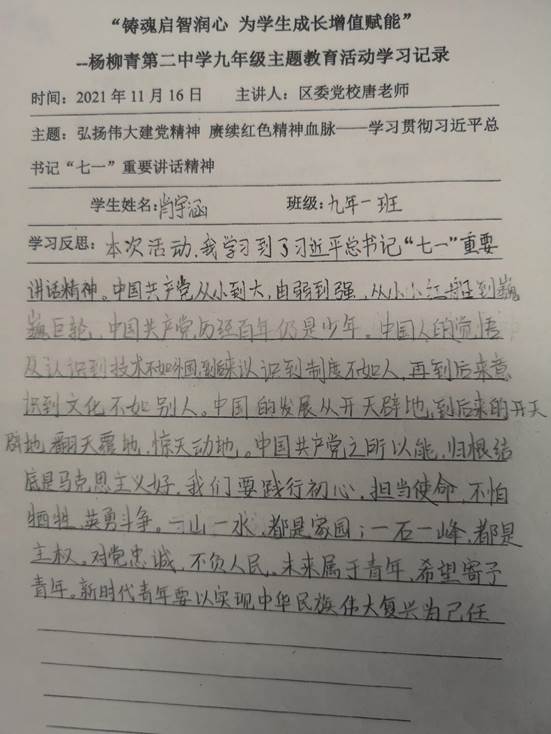 “铸魂启智润心 为学生成长增值赋能”
--杨柳青第二中学九年级主题教育活动学习记录
时间：2021年11月16日 主讲人：区委党校唐老师
主题：弘扬伟大建党精神 赓续红色精神血脉——学习贯彻习近平总
书记“七一”重要讲话精神
学生姓名:肖宇涵 班级:九年一班
学习反思：本次活动,我学习到了习近平总书记“七一”重要
讲话精神。中国共产党从小到大,由弱到强,从小小红船到巍
巍巨轮,中国共产党历经百年仍是少年。中国人的觉悟
从认识到技术不如外国,到后来认识到制度不如人,再到后来意
识到文化不如别人。中国的发展从开天辟地,到后来的开天
辟地,翻天覆地,惊天动地。中国共产党之所以能,归根结
底是马克思主义好,我们要践行初心,担当使命,不怕
牺牲,英勇斗争。一山一水,都是家园;一石一峰,都是
主权。对党忠诚,不负人民。未来属于青年,希望寄予
青年。新时代青年要以实现中华民族伟大复兴为己任